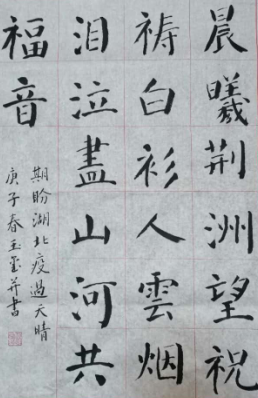 晨曦荆洲望祝
祷白衫人雲烟
泪泣盡山河共
福音
期盼湖北疫過天晴
庚子春玉玺并書